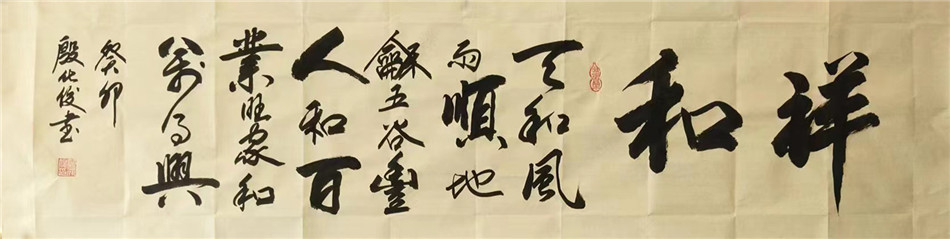 祥和
天和風
雨順地
龢五谷豐
人和百
業旺家和
萬事興
癸卯
殷化俊書